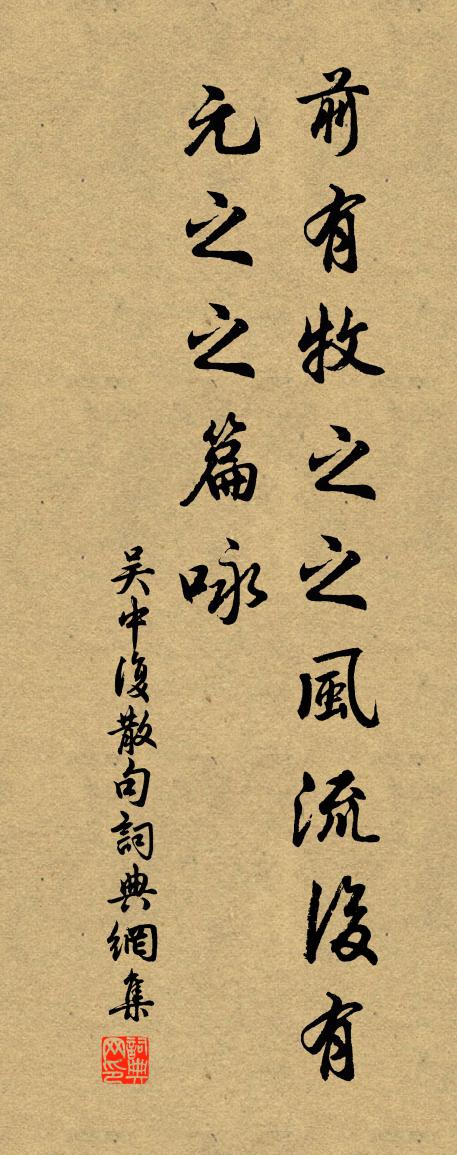 前有牧之之風流後有
元之之篇咏
吴中復散句詞典網集
詞典网印